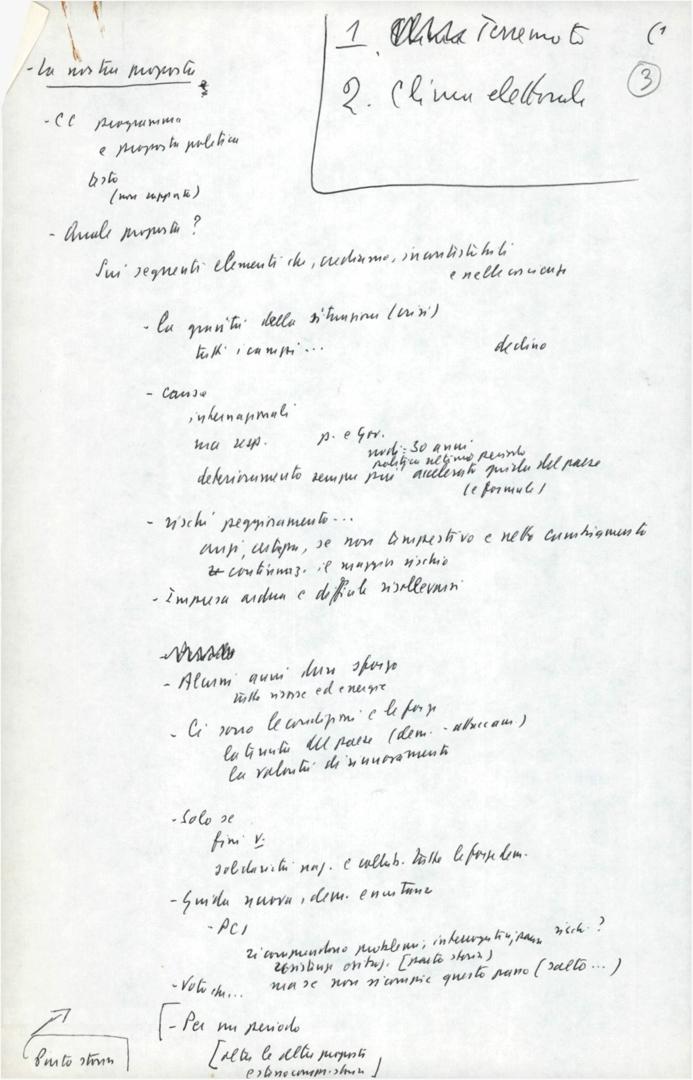 1. Terremoto
3
2. Clima elettorale
- La nostra proposta
- CC programma
e proposta politica
testo
(non rapporto)
- Quale proposta?
Sui seguenti elementi che, crediamo, incontestabili
e nelle coscienze
- La gravità della situazione (crisi)
tutti i campi...
declino
- Cause
internazionali
ma resp. p. e Gov.
nodi: 30 anni
politica ultimo periodo
deterioramento sempre più accelerato guida del paese
(e formule)
- rischi peggioramento...
anzi, se non tempestivo e netto cambiamento
continuaz. il maggior rischio
- Impresa ardua e difficile risollevarsi
- Alcuni anni duro sforzo
tutte risorse ed energie
- Ci sono le condizioni e le forze
la tenuta del paese (dem. - attaccam.)
la volontà di rinnovamento
- Solo se
fini
solidarietà naz. e collab. tutte le forze dem.
- Guida nuova, dem.
- PCI
si comprendono problemi, interrogativi, paure rischi?
[punto storia]
- Voto che... ma se non si compie questo passo (salto...)
[- Per un periodo
[oltre le altre proposte
Punto storia